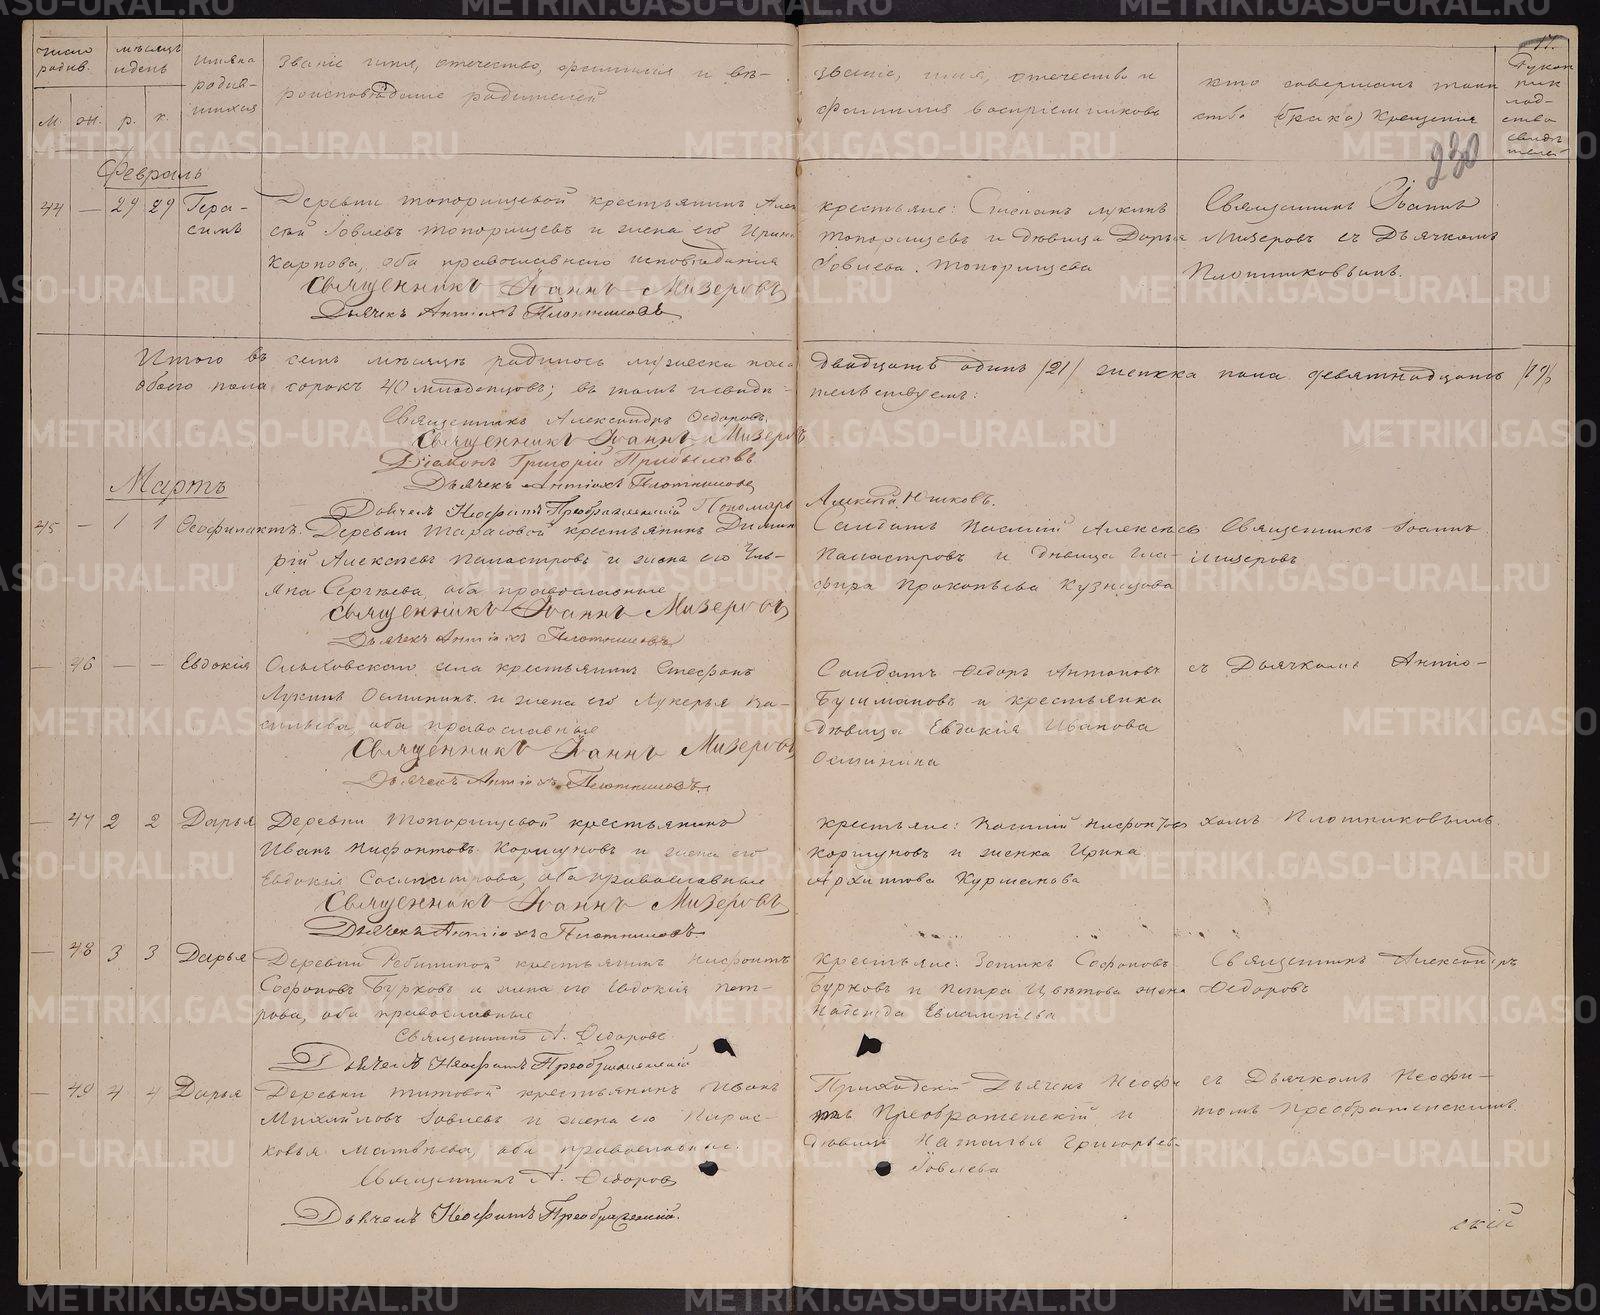 Число родив.
мѣсяцъ и день
имяна родив-
шихся
Званіе имя, отечество, фамилія и вѣ-
роисповѣданіе родителей
м. ж. р. к.
Званіе, имя, отечество и
фамилия воспріемниковъ
кто совершалъ таин
ство (брака) Крещения
17.
230
Февраль
44 — 29 29 Гера-
симъ
Деревни Топорищевой крестьянинъ
Іовлевъ Топорищевъ и жена его Ирина
Карпова, оба православнаго исповѣданія
Священникъ Іоаннъ Мизеровъ
Дьячекъ Антіохъ Плотниковъ
крестьяне: Степанъ Лукинъ
Топорищевъ и дѣвица Дарья
Іовлева Топорищева
Священникъ Іоаннъ
Мизеровъ съ Дьячкомъ
Плотниковымъ.
Итого въ семъ мѣсяцѣ родилось мужеска пола двадцать одинъ /21/ женска пола девятнадцать /19/
обоего пола сорокъ 40 младенцовъ; въ томъ свидѣ-
тельствуемъ:
Священникъ Александръ Федоровъ.
Священникъ Іоаннъ Мизеровъ
Діаконъ Григорій Прибылевъ
Дьячекъ Антіохъ Плотниковъ
Дьячекъ Неофитъ Преображенский Пономарь Алексѣй Юшковъ.
Мартъ
45 — 1 1 Феофилактъ.
Деревни Тарасовой крестьянинъ Дими
рій Алексѣевъ и жена его Уль-
яна Сергѣева, оба православные
Священникъ Іоаннъ Мизеровъ
Дьячекъ Антіохъ Плотниковъ
Солдатъ Василій Алексѣевъ
и дѣвица Гла-
фира Прокопьева Кузнецова
Священникъ Іоаннъ
Мизеровъ
— 46 — — Евдокія
села крестьянинъ Стефанъ
Лукинъ Осминин и жена его Лукерья Ва-
сильева, оба православные
Священникъ Іоаннъ Мизеровъ
Дьячекъ Антіохъ Плотниковъ.
Солдатъ Федоръ Антоновъ
Бушмановъ и крестьянка
дѣвица Евдокія Иванова
Осминина
съ Дьячкомъ Антіо-
— 47 2 2 Дарья
Деревни Топорищевой крестьянинъ
Иванъ Нифонтовъ Коршуновъ и жена его
Евдокія Сосипатрова, оба православные
Священникъ Іоаннъ Мизеровъ
Дьячекъ Антіохъ Плотниковъ
крестьяне: Василій Нифонтовъ
Коршуновъ и женка Ирина
Архипова Курманова
хомъ Плотниковымъ.
— 48 3 3 Дарья
Деревни крестьянинъ Нифонтъ
Софоновъ Бурковъ и жена его Евдокія Пет-
рова, оба православные
Священникъ А. Федоровъ
Дьячекъ Неофитъ Преображенский
крестьяне: Зотикъ Софоновъ
Бурковъ и Петра Цвѣтова жена
Надежда Евлампіева
Священникъ Александръ
Федоровъ
— 49 4 4 Дарья
Деревни Титовой крестьянинъ Иванъ
Михайловъ Іовлевъ и жена его Парас-
ковья Матвѣева, оба православные.
Священникъ А. Федоровъ
Дьячекъ Неофитъ Преображенский.
Приходскій Дьячекъ Неофи
тъ Преображенскій и
дѣвица Наталья Григорьев-
Іовлева
съ Дьячкомъ Неофи-
томъ Преображенскимъ.
скій
METRIKI.GASO-URAL.RU